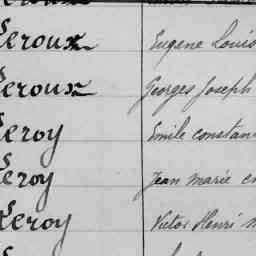 Leroux Eugene Louis
Leroux Georges Joseph
Leroy Emile constan
Leroy Jean marie em
Leroy Victor Henri m